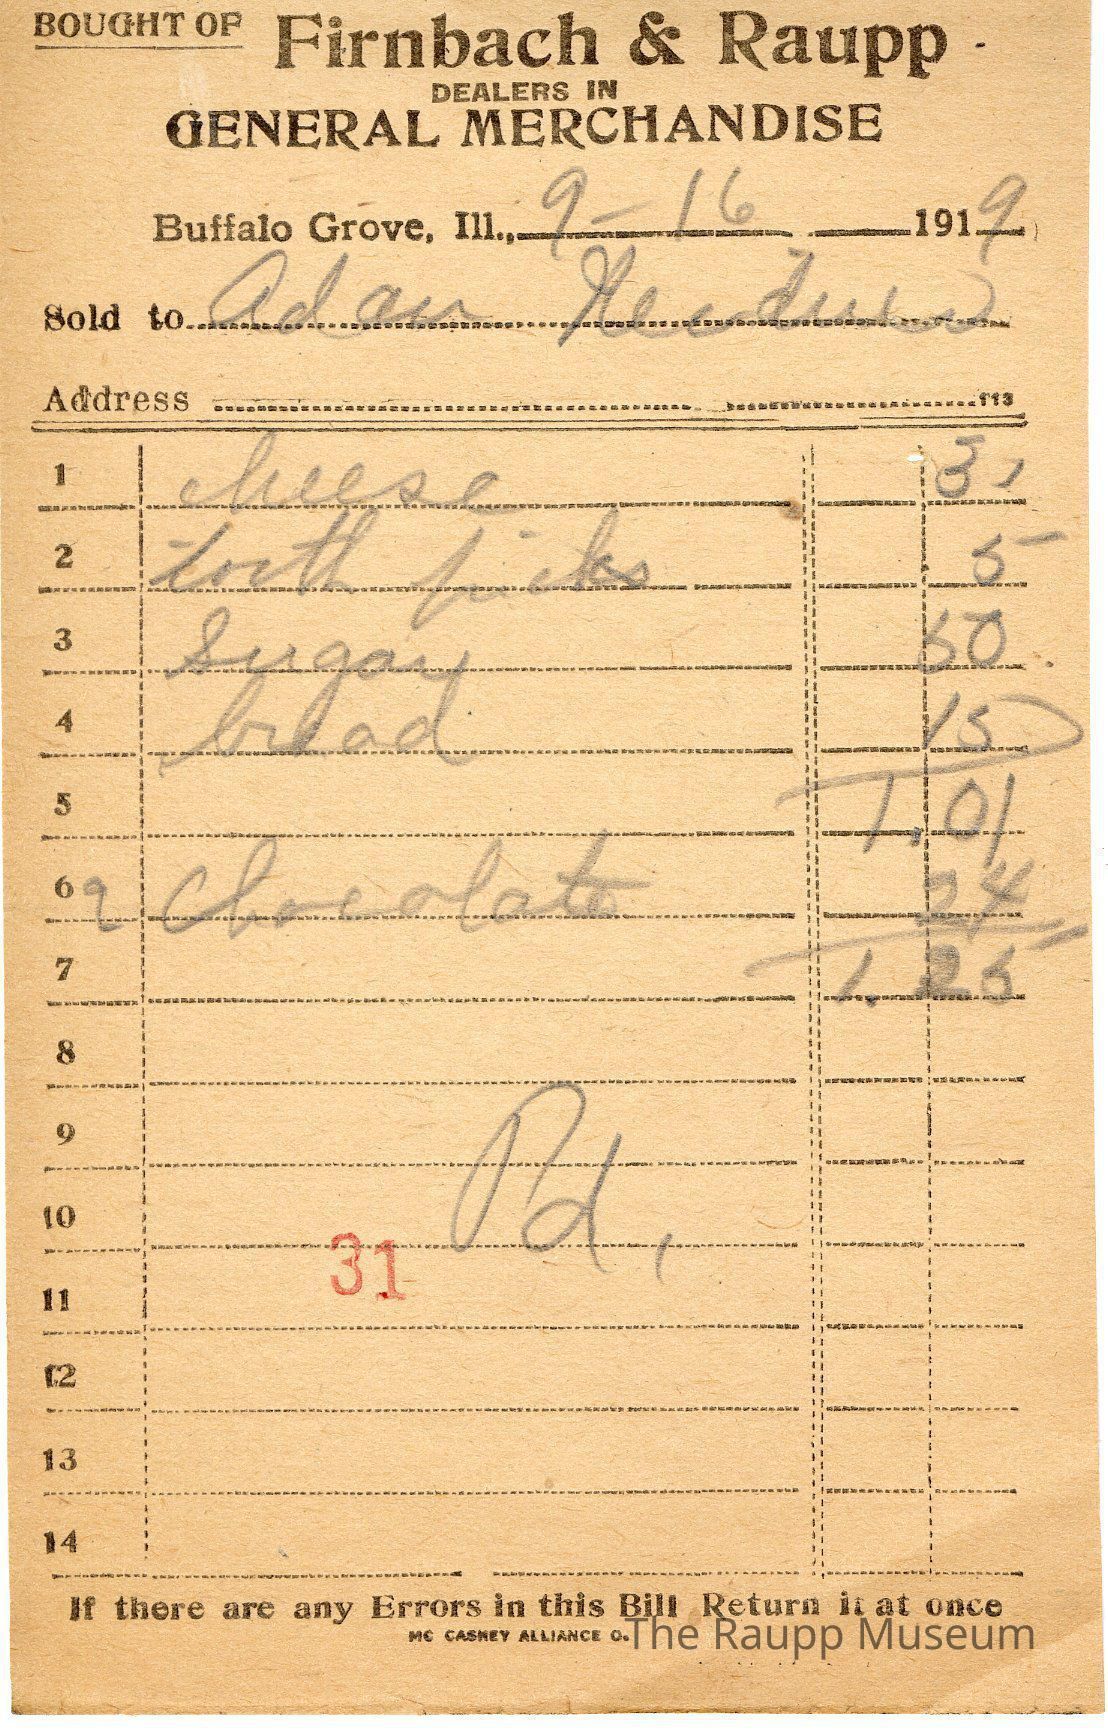 BOUGHT OF Firnbach & Raupp
DEALERS IN
GENERAL MERCHANDISE
Buffalo Grove, Ill., 9-16 1919
Sold to Adam
Address 113
1 cheese 31
2 tooth picks 5
3 Sugar 50
4 bread 15
5 1.01
6 2 Chocolate 24
7 1.25
8
9
Pd,
10
31
11
12
13
14
If there are any Errors in this Bill Return it at once
MC CASKEY ALLIANCE O.
The Raupp Museum